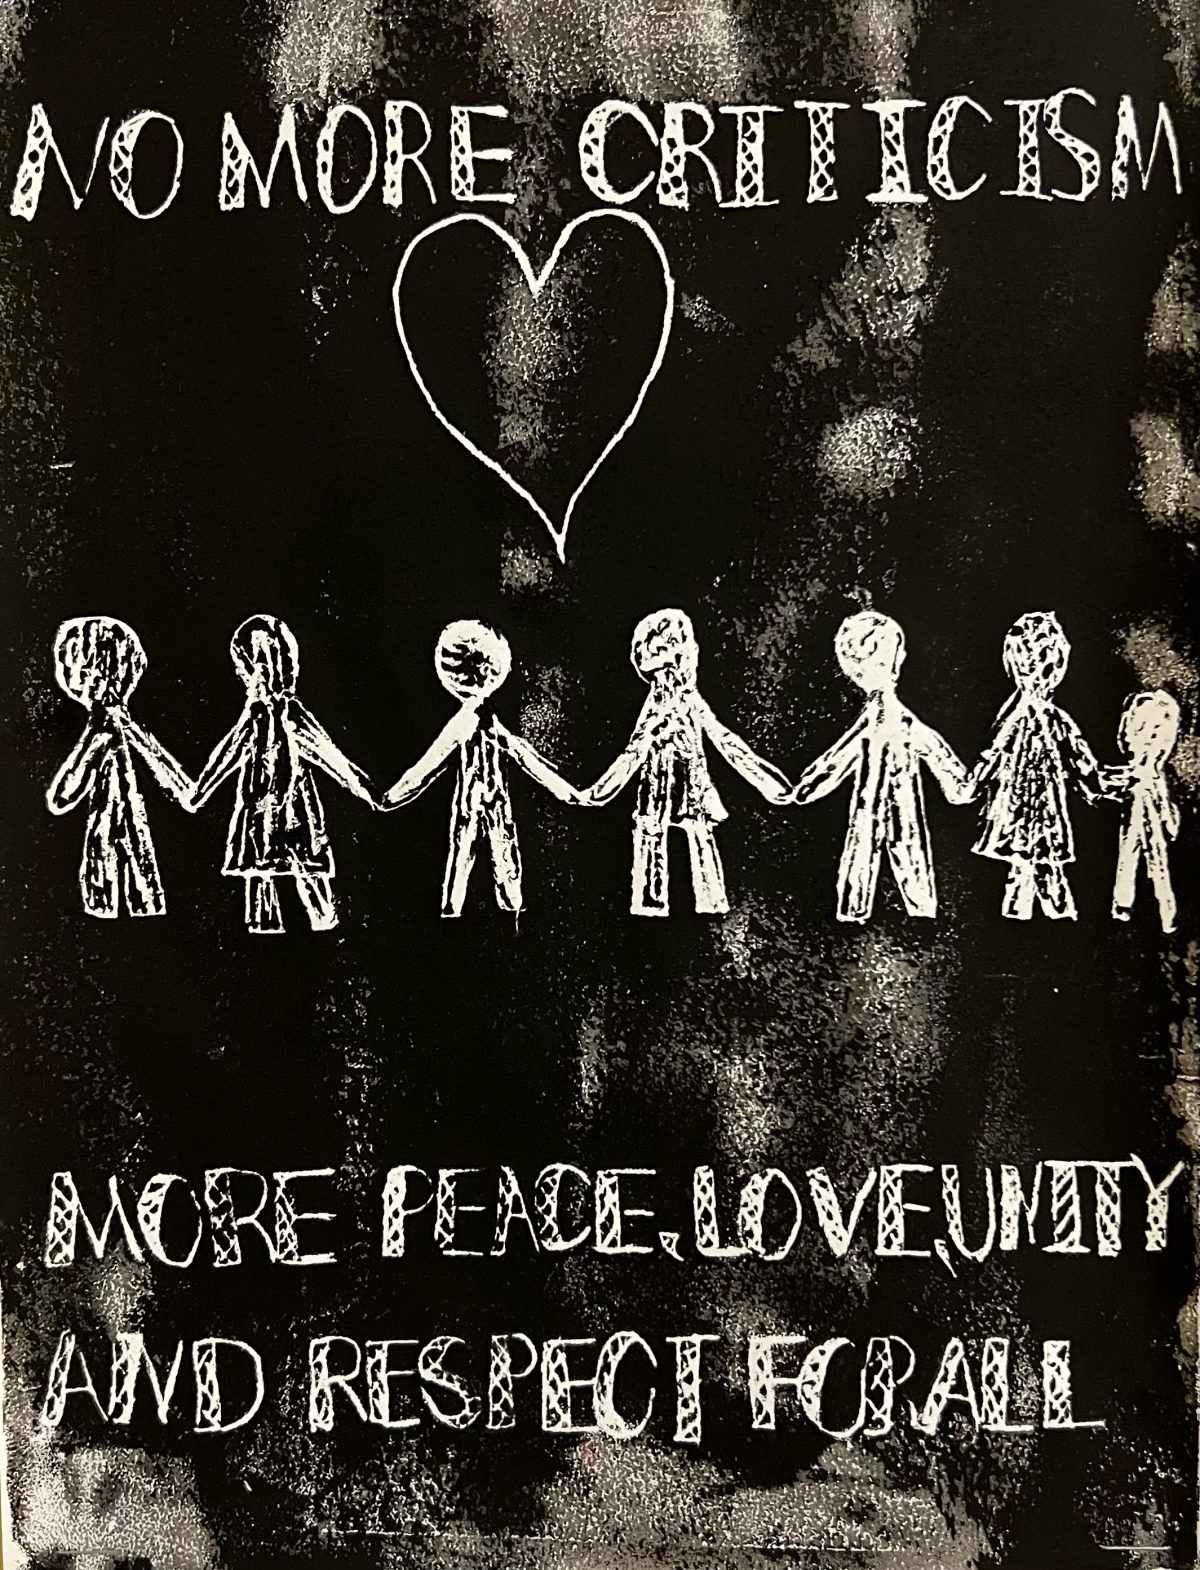 NO MORE CRITICISM
MORE PEACE, LOVE, UNITY
AND RESPECT FOR ALL